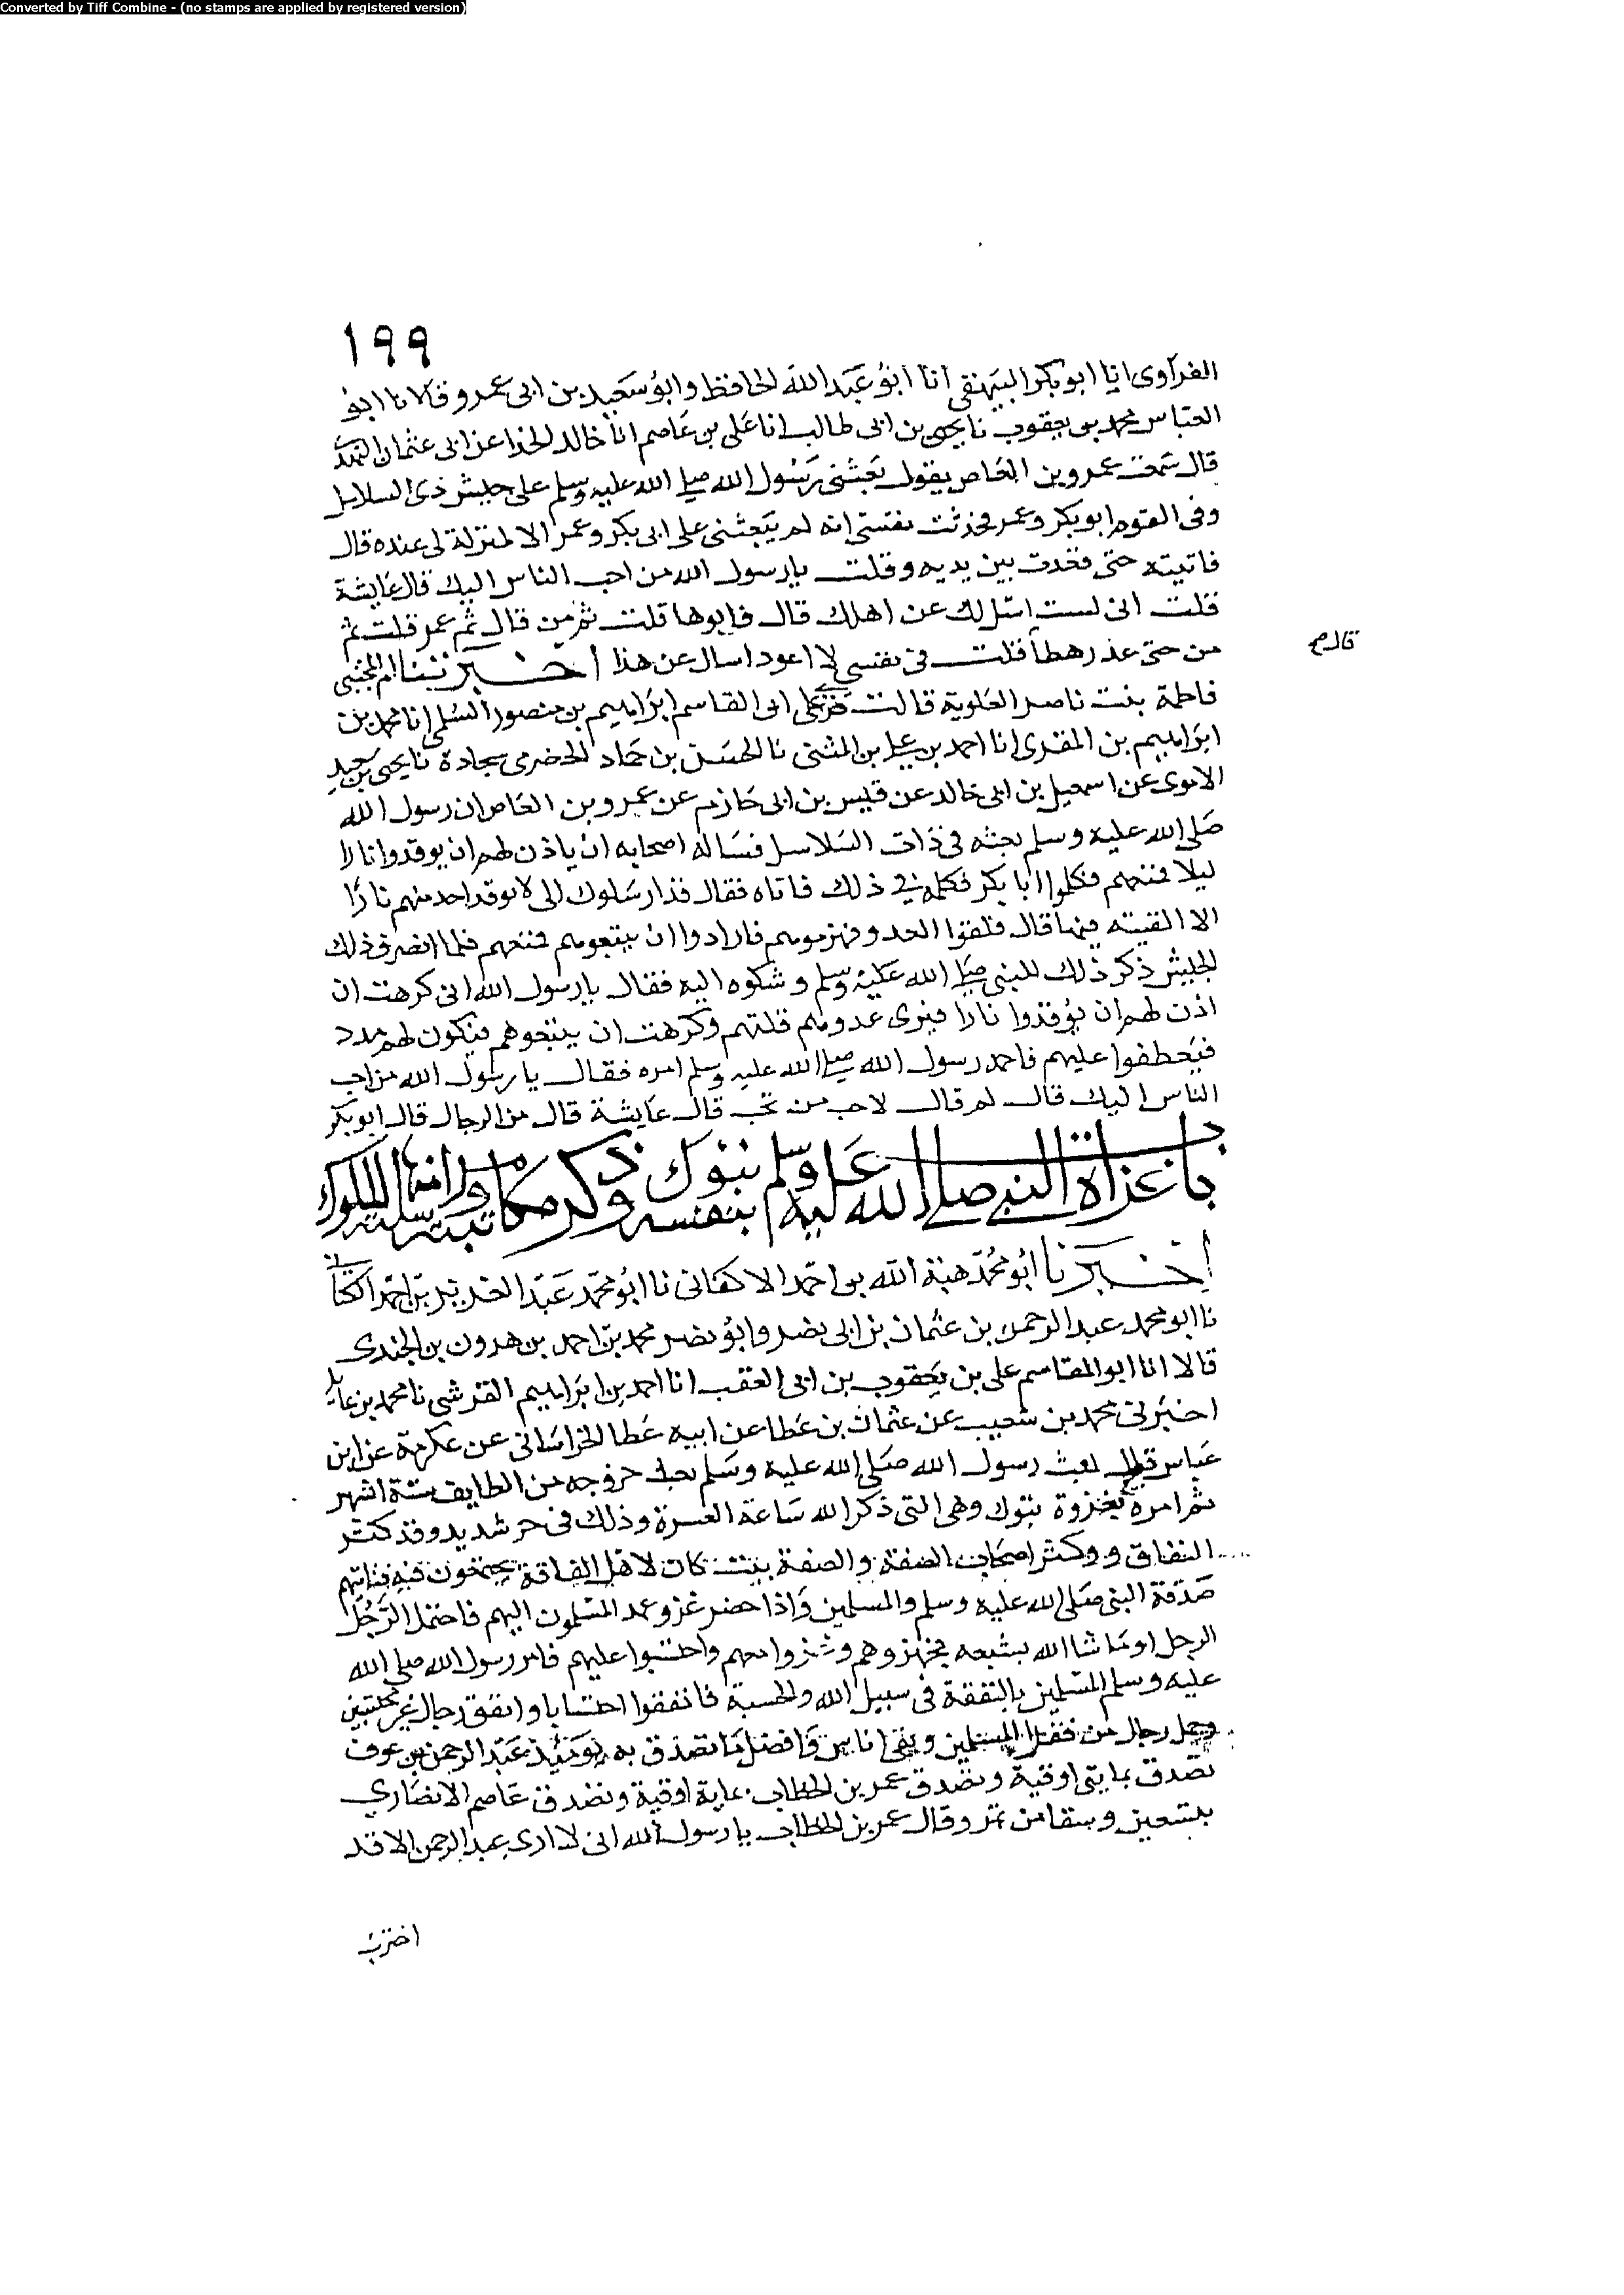 Converted by Tiff Combine - (no stamps are applied by registered version)
١٩٩
الفراوى انا ابو بكر البيهقي أنا أبو عبد الله الحافظ وابو سعيد بن ابى عمرو قالا نا ابو
العباس محمد بن يعقوب نا يحيى بن ابى طالب انا على بن عاصم انا خالد الحذا عن ابى عثمان النهدى
قال سمعت عمرو بن العاص يقول بعثنى رسول الله صلى الله عليه وسلم على جيش ذى السلاسل
وفى القوم ابو بكر وعمر فحدثت نفسى انه لم يبعثنى على ابى بكر وعمر الا لمنزلة لى عنده قال
فاتيته حتى قعدت بين يديه وقلت يا رسول الله من احب الناس اليك قال عايشة
قلت انى لست اسئلك عن اهلك قال فابوها قلت ثم من قال ثم عمر قلت ثم
من حتى عد رهطا قلت فى نفسى لا اعود اسال عن هذا أخبرتنا ام المجتبى
قال م
فاطمة بنت ناصر العلوية قالت قرئ على ابى القاسم ابراهيم بن منصور السلمى انا محمد بن
ابراهيم بن المقرى انا احمد بن على بن المثنى نا الحسن بن حماد الحضرمى سجادة نا يحيى بن سعيد
الاموى عن اسمعيل بن ابى خالد عن قيس بن ابى حازم عن عمرو بن العاص ان رسول الله
صلى الله عليه وسلم بعثه فى ذات السلاسل فساله اصحابه ان ياذن لهم ان يوقدوا نارا
ليلا فمنعهم فكلموا ابا بكر فكلمه فى ذلك فاتاه فقال قد ارسلوك الى لا يوقد احد منهم نارا
الا القيته فيها قال فلقوا العدو فهزموهم فارادوا ان يتبعوهم فمنعهم فلما انصرف ذلك
الجيش ذكر ذلك للنبى صلى الله عليه وسلم وشكوه اليه فقال يا رسول الله انى كرهت ان
اذن لهم ان يوقدوا نارا فيرى عدوهم قلتهم وكرهت ان يتبعوهم فيكون لهم مدد
فيعطفوا عليهم فاحمد رسول الله صلى الله عليه وسلم امره فقال يا رسول الله من احب
الناس اليك قال لم قال لاحب من تحب قال عايشة قال من الرجال قال ابو بكر
باب غزاة النبى صلى الله عليه وسلم تبوك بنفسه وذكر مكاتبته ومراسلته منها الملوك
أخبرنا ابو محمد هبة الله بن احمد الاكفانى نا ابو محمد عبد العزيز بن احمد الكتانى
نا ابو محمد عبد الرحمن بن عثمان بن ابى نصر وابو نصر محمد بن احمد بن هرون بن الجندى
قالا انا ابو القاسم على بن يعقوب بن ابى العقب انا احمد بن ابراهيم القرشى نا محمد بن عايذ
اخبرنى محمد بن شعيب عن عثمان بن عطا عن ابيه عطا الخراسانى عن عكرمة عن ابن
عباس قال لبث رسول الله صلى الله عليه وسلم بعد خروجه من الطايف ستة اشهر
ثم امره بغزوة تبوك وهى التى ذكر الله ساعة العسرة وذلك فى حر شديد وقد كثر
النفاق و وكثر اصحاب الصفة والصفة بيت كان لاهل الفاقة يجتمعون فيه فتاتيهم
صدقة النبى صلى الله عليه وسلم والمسلمين واذا حضر غزو عمد المسلمون اليهم فاحتمل الرجل
الرجل او ما شا الله بشبعه يجهزوهم وغزوا معهم واحتسبوا عليهم فامر رسول الله صلى الله
عليه وسلم المسلمين بالنفقة فى سبيل الله والحسبة فانفقوا احتسابا وانفق رجال غير محتسبين
وحمل رجال من فقرا المسلمين وبقى اناس وافضل ما تصدق به يومئذ عبد الرحمن بن عوف
تصدق بمايتى اوقية وتصدق عمر بن الخطاب بماية اوقية وتصدق عاصم الانصاري
بتسعين وسقا من تمر وقال عمر بن الخطاب يا رسول الله انى لا ارى عبد الرحمن الا قد